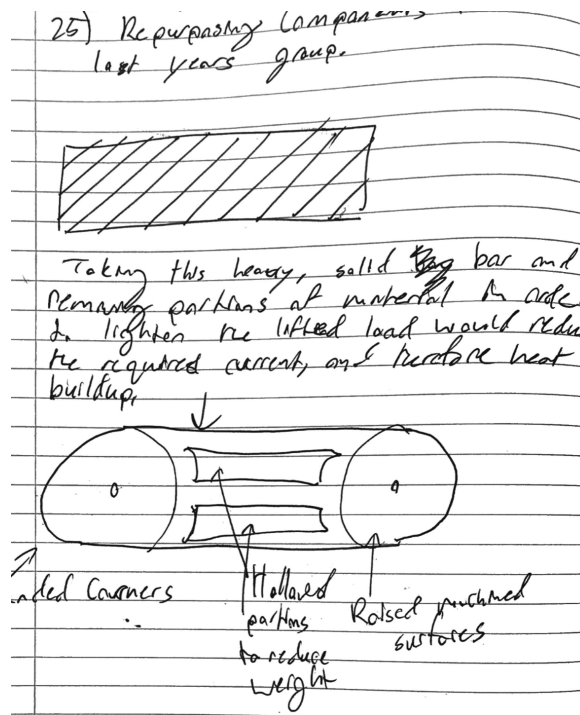 25) Repurposing Components
last years group.
Taking this heavy, solid bar and
removing portions of material in orde
to lighten the lifted load would redu
the required current, and therefore heat
buildup.
nded Corners
Hollowed
portions
to reduce
weight
Raised machined
surfaces